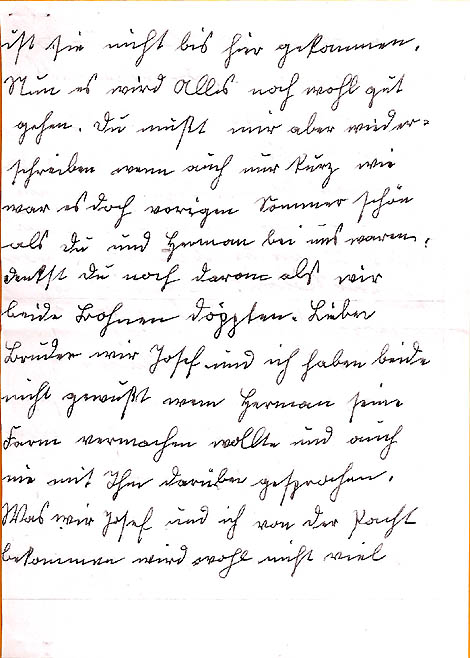 ist sie nicht bis hier gekommen.
Nun es wird Alles noch wohl gut
gehen. Du mußt mir aber wieder=
schreiben wenn auch nur kurz wie
war es doch vorigen Sommer schön
als Du und Herman bei uns waren,
denkst Du noch daran als wir
beide Bohnen döppten. Lieber
Bruder wir Josef und ich haben beide
nicht gewußt wem Herman seine
Farm vermachen wollte und auch
nie mit Ihm darüber gesprochen.
Was wir Josef und ich von der Pacht
bekommen wird wohl nicht viel